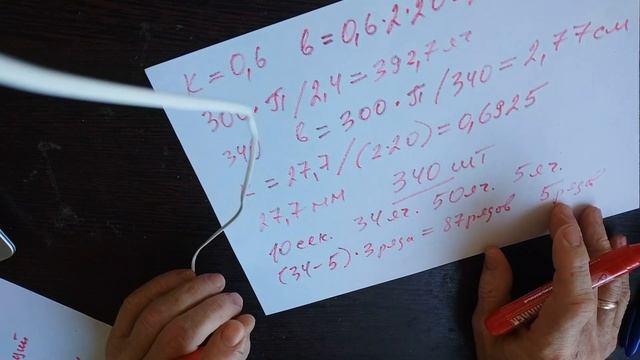 K = 0,6 b = 0,6·2·20
300·π/2,4 = 392,7 яч
340 b = 300·π/340 = 2,77 см
= 27,7/(2·20) = 0,6925
27,7 мм 340 шт
10 сек. 34 яч. 50 яч. 5 яч.
(34-5)·3 ряда = 87 рядов 5 рядов